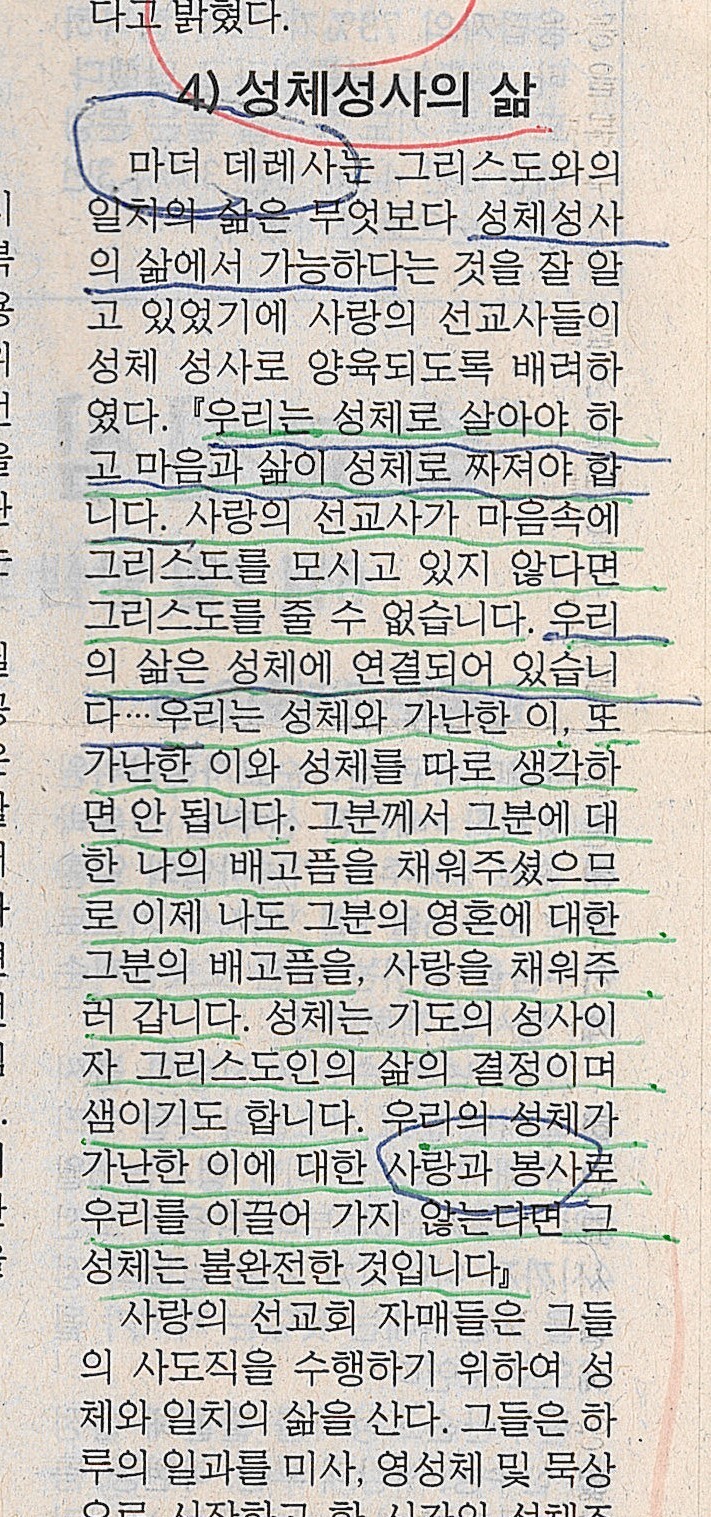 다고 밝혔다.
4) 성체성사의 삶
마더 데레사는 그리스도와의
일치의 삶은 무엇보다 성체성사
의 삶에서 가능하다는 것을 잘 알
고 있었기에 사랑의 선교사들이
성체 성사로 양육되도록 배려하
였다. 『우리는 성체로 살아야 하
고 마음과 삶이 성체로 짜져야 합
니다. 사랑의 선교사가 마음속에
그리스도를 모시고 있지 않다면
그리스도를 줄 수 없습니다. 우리
의 삶은 성체에 연결되어 있습니
다…우리는 성체와 가난한 이, 또
가난한 이와 성체를 따로 생각하
면 안 됩니다. 그분께서 그분에 대
한 나의 배고픔을 채워주셨으므
로 이제 나도 그분의 영혼에 대한
그분의 배고픔을, 사랑을 채워주
러 갑니다. 성체는 기도의 성사이
자 그리스도인의 삶의 결정이며
샘이기도 합니다. 우리의 성체가
가난한 이에 대한 사랑과 봉사로
우리를 이끌어 가지 않는다면 그
성체는 불완전한 것입니다』
사랑의 선교회 자매들은 그들
의 사도직을 수행하기 위하여 성
체와 일치의 삶을 산다. 그들은 하
루의 일과를 미사, 영성체 및 묵상
으로 시작하고 한 시간의